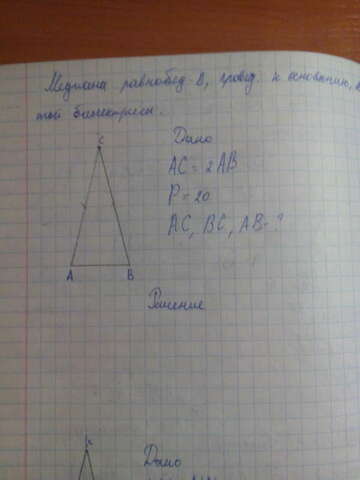 Медиана равнобед. В, провед. к основанию,
той биссектрисы.
C
A B
Дано
AC = 2AB
P = 20
AC, BC, AB - ?
Решение
Дано